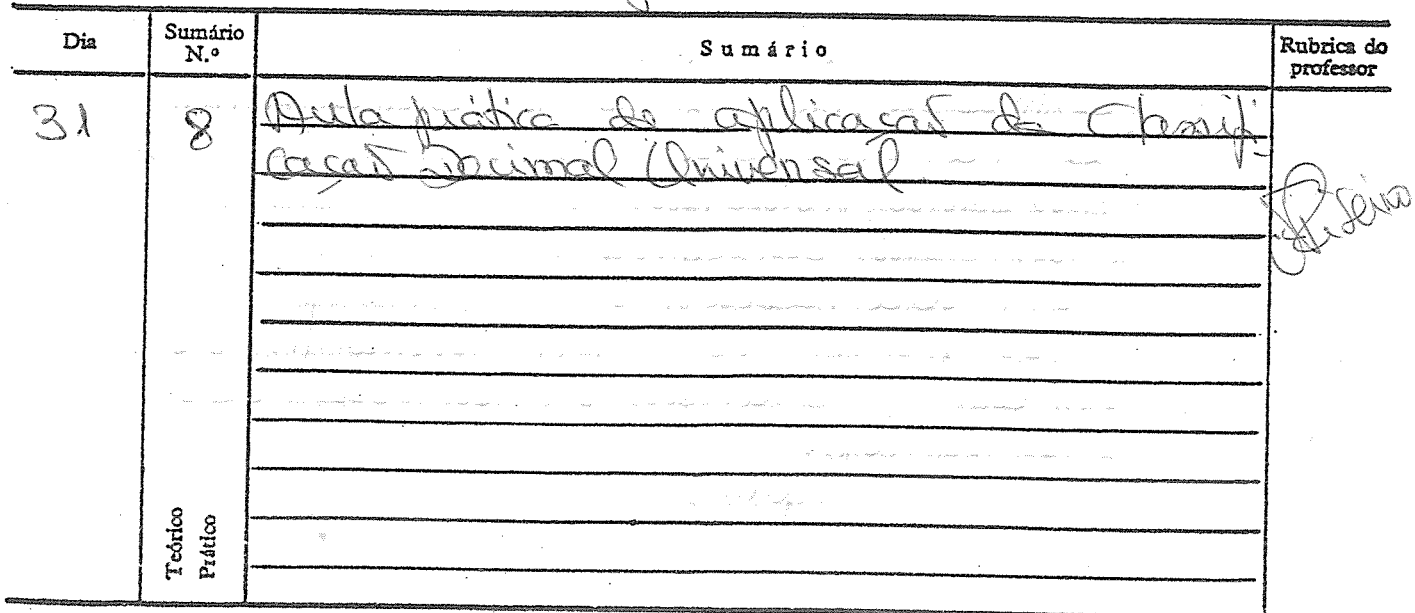 Dia
Sumário N.º
Sumário
Rubrica do professor
31
8
Aula prática de aplicação da Classifi-
cação Decimal Universal.
Teórico
Prático